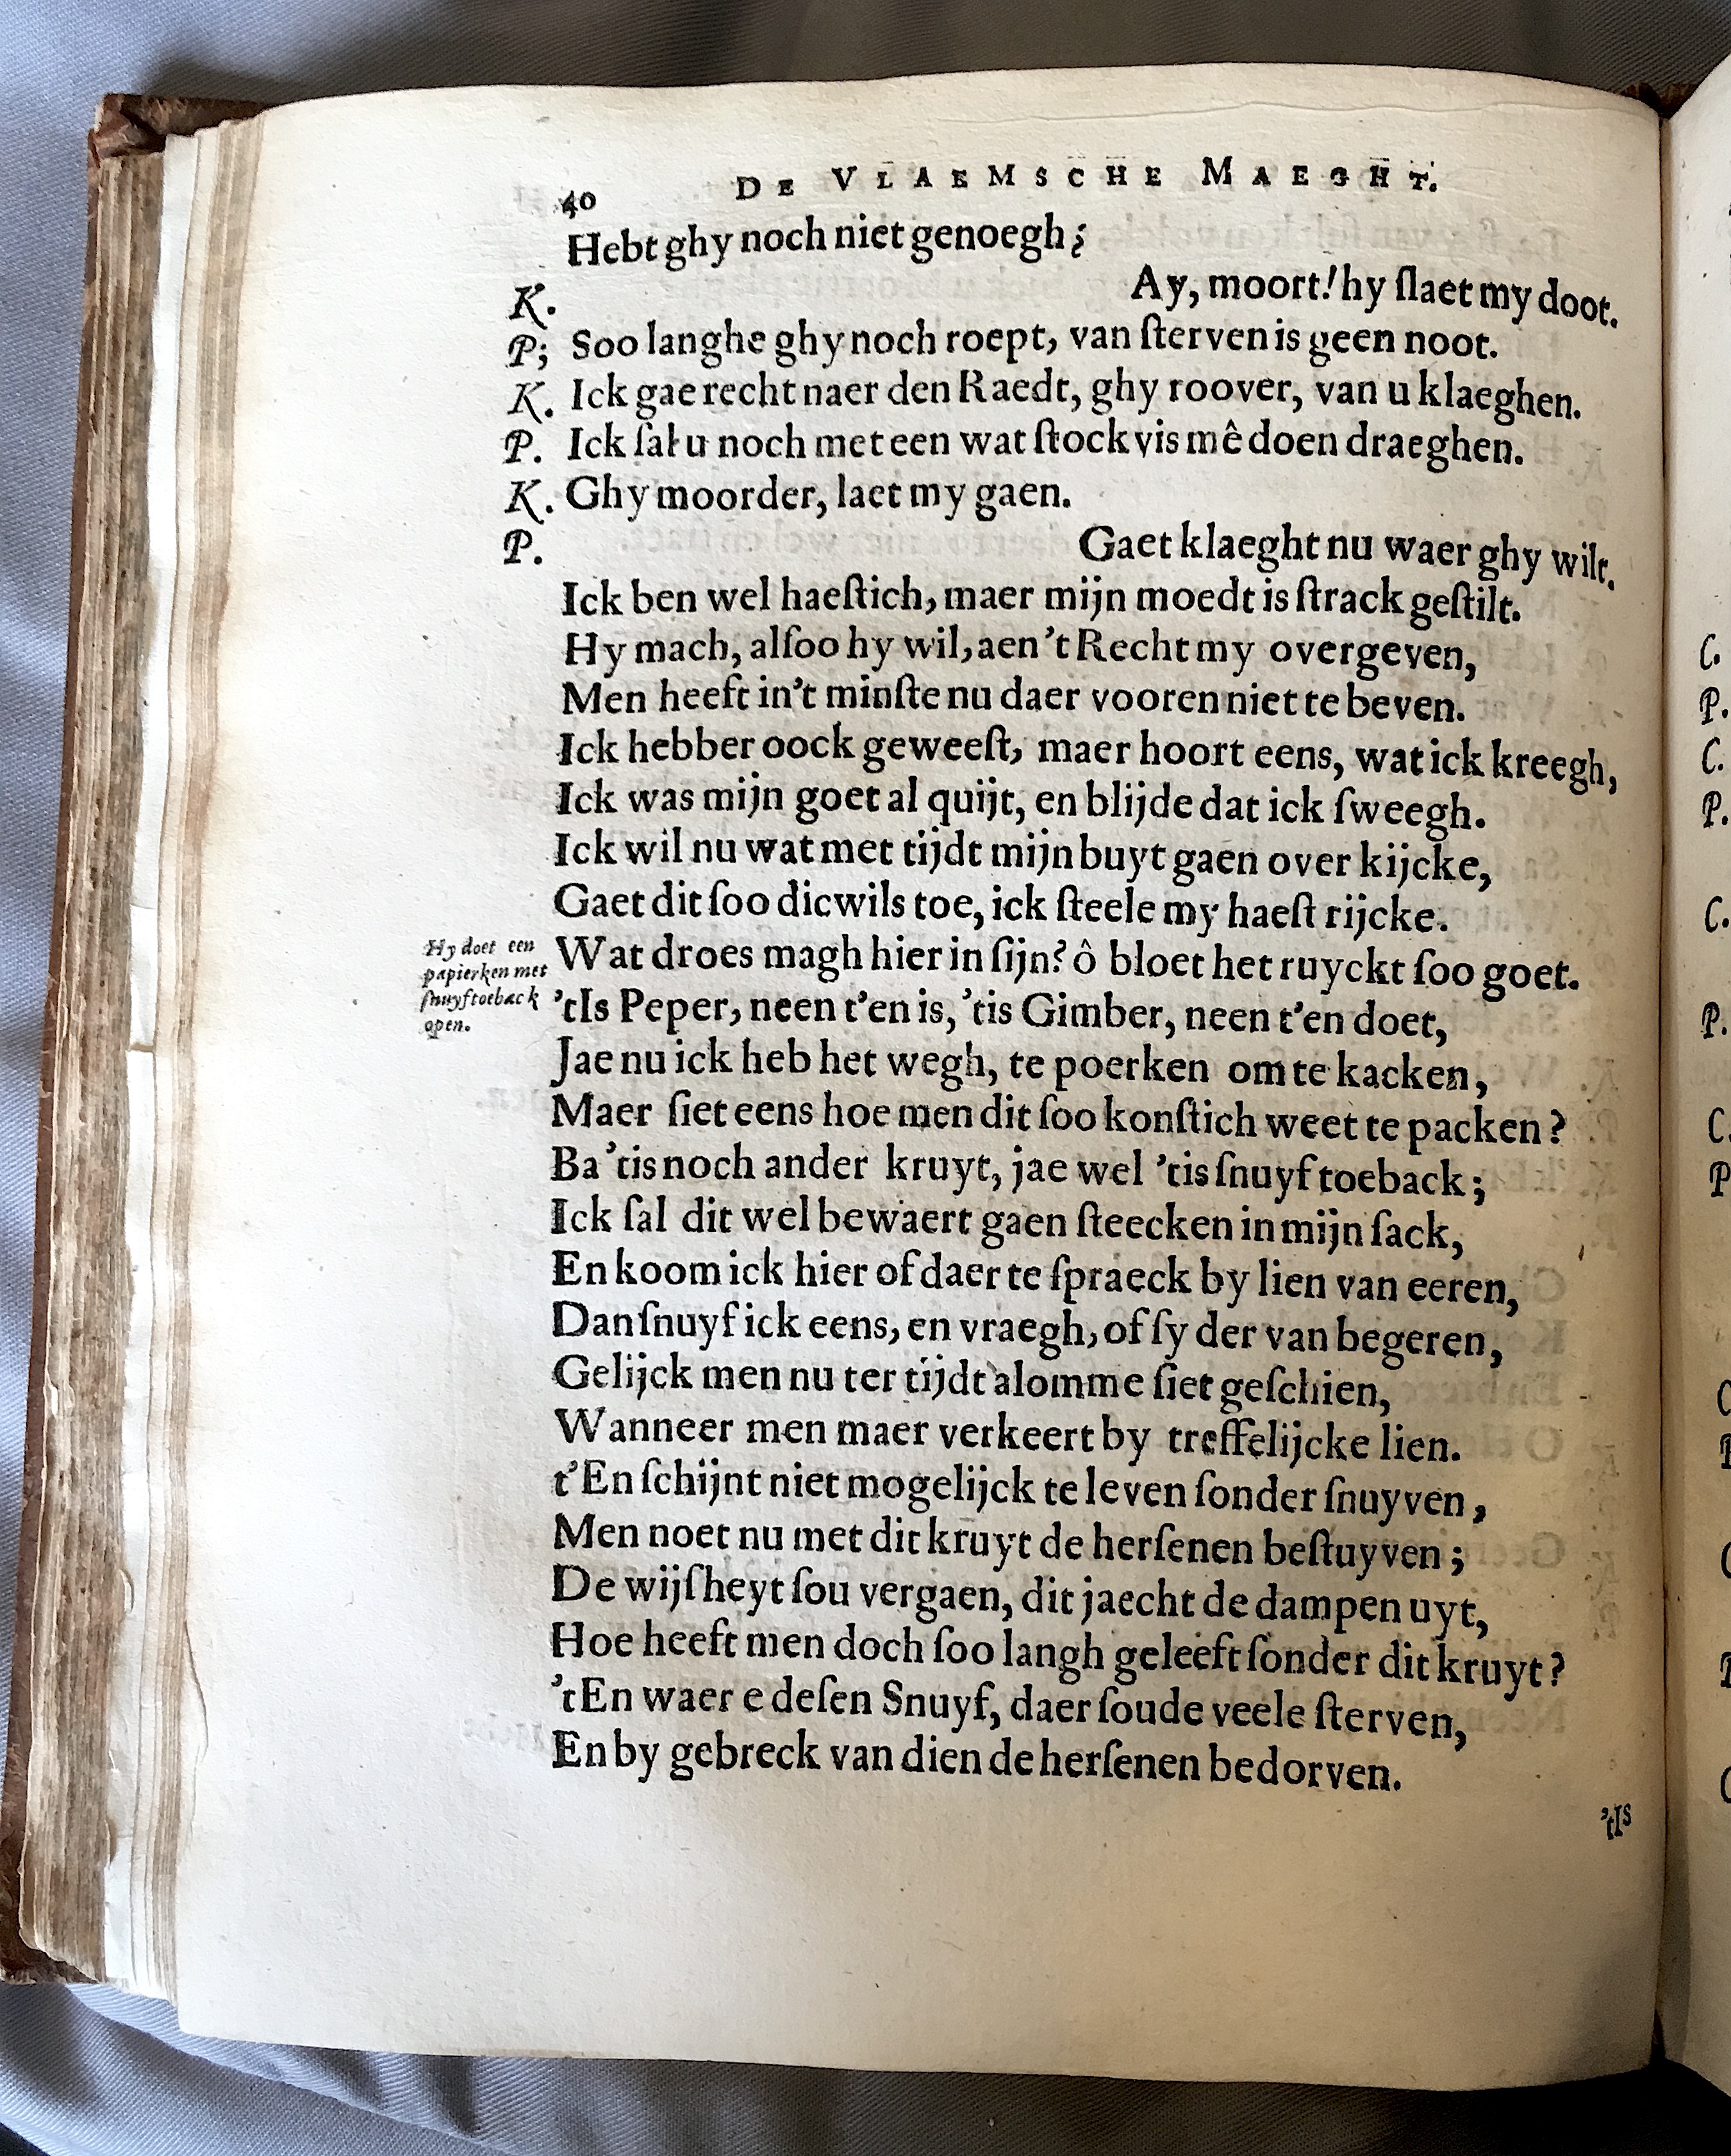 40 DE VLAEMSCHE MAEGHT.
Hebt ghy noch niet genoegh;
K. Ay, moort! hy ſlaet my doot.
P; Soo langhe ghy noch roept, van ſterven is geen noot.
K. Ick gae recht naer den Raedt, ghy roover, van u klaeghen.
P. Ick ſal u noch met een wat ſtockvis mê doen draeghen.
K. Ghy moorder, laet my gaen.
P. Gaet klaeght nu waer ghy wilt.
Ick ben wel haeſtich, maer mijn moedt is ſtrack geſtilt.
Hy mach, alſoo hy wil, aen 't Recht my overgeven,
Men heeft in't minſte nu daer vooren niet te beven.
Ick hebber oock geweeſt, maer hoort eens, wat ick kreegh,
Ick was mijn goet al quijt, en blijde dat ick ſweegh.
Ick wil nu wat met tijdt mijn buyt gaen over kijcke,
Gaet dit ſoo dicwils toe, ick ſteele my haeſt rijcke.
Hy doet een papierken met ſnuyftoeback open.
Wat droes magh hier in ſijn? ô bloet het ruyckt ſoo goet.
'tIs Peper, neen t'en is, 'tis Gimber, neen t'en doet,
Jae nu ick heb het wegh, te poerken om te kacken,
Maer ſiet eens hoe men dit ſoo konſtich weet te packen?
Ba 'tis noch ander kruyt, jae wel 'tis ſnuyf toeback;
Ick ſal dit wel bewaert gaen ſteecken in mijn ſack,
En koom ick hier of daer te ſpraeck by lien van eeren,
Dan ſnuyf ick eens, en vraegh, of ſy der van begeren,
Gelijck men nu ter tijdt alomme ſiet geſchien,
Wanneer men maer verkeert by treffelijcke lien.
t'En ſchijnt niet mogelijck te leven ſonder ſnuyven,
Men noet nu met dit kruyt de herſenen beſtuyven;
De wijſheyt ſou vergaen, dit jaecht de dampen uyt,
Hoe heeft men doch ſoo langh geleeft ſonder dit kruyt?
'tEn waer e deſen Snuyf, daer ſoude veele ſterven,
En by gebreck van dien de herſenen bedorven.
'tIs
C.
P.
C.
P.
C.
P.
C.
P